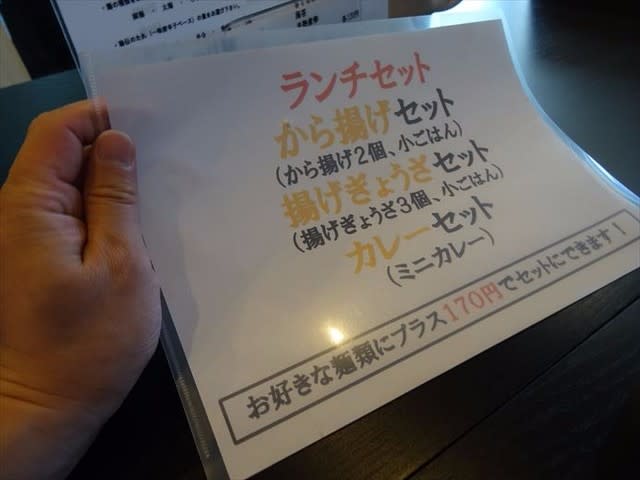 ランチセット
から揚げセット
(から揚げ2個、小ごはん)
揚げぎょうざセット
(揚げぎょうざ3個、小ごはん)
カレーセット
(ミニカレー)
お好きな麺類にプラス170円でセットにできます!